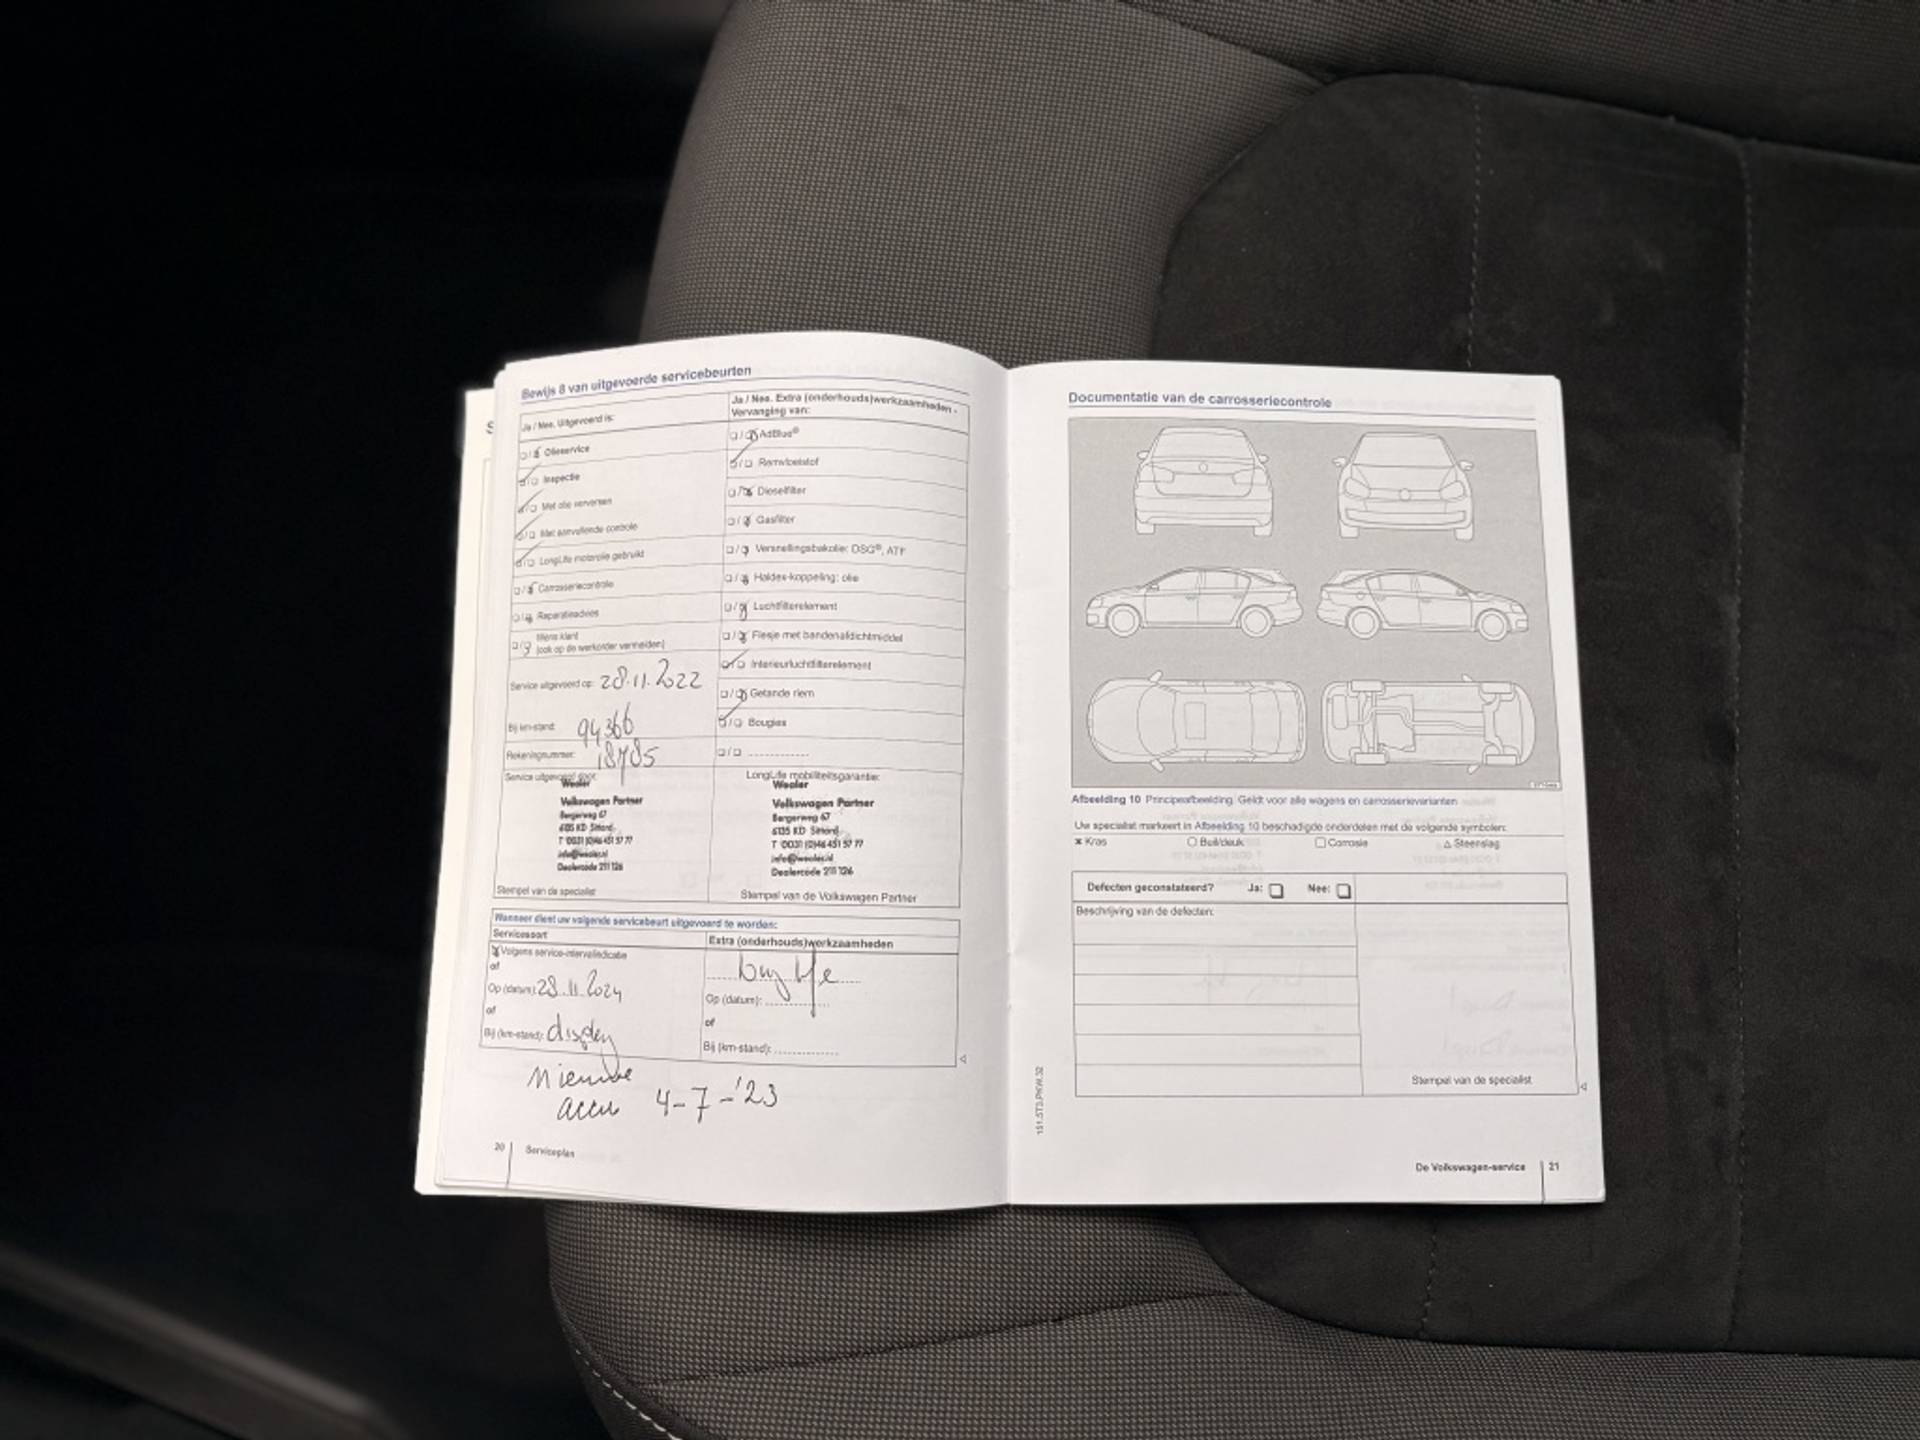 Bewijs 8 van uitgevoerde servicebeurten
Ja / Nee. Uitgevoerd is:
Ja / Nee. Extra (onderhouds)werkzaamheden -
Vervanging van:
Olieservice
Inspectie
Met olie verversen
Met aanvullende controle
LongLife motorolie gebruikt
Carrosseriecontrole
Reparatieadvies
Wens klant
(ook op de werkorder vermelden)
Service uitgevoerd op: 28.11.2022
Bij km-stand: 94366
Rekeningnummer: 18785
AdBlue®
Remvloeistof
Dieselfilter
Gasfilter
Versnellingsbakolie: DSG®, ATF
Haldex-koppeling: olie
Luchtfilterelement
Flesje met bandenafdichtmiddel
Interieurluchtfilterelement
Getande riem
Bougies
Service uitgevoerd door:
Wealer
Volkswagen Partner
Bergerweg 67
6135 KD Sittard
T 0031 (0)46 451 57 77
info@wealer.nl
Dealercode 211 126
Stempel van de specialist
LongLife mobiliteitsgarantie:
Wealer
Volkswagen Partner
Bergerweg 67
6135 KD Sittard
T 0031 (0)46 451 57 77
info@wealer.nl
Dealercode 211 126
Stempel van de Volkswagen Partner
Wanneer dient uw volgende servicebeurt uitgevoerd te worden:
Servicesoort
Volgens service-intervalindicatie
of
Op (datum): 28.11.2024
of
Bij (km-stand): display
Extra (onderhouds)werkzaamheden
long life
Op (datum):
of
Bij (km-stand):
Nieuwe
accu 4-7-'23
20 Serviceplan
Documentatie van de carrosseriecontrole
Afbeelding 10 Principeafbeelding: Geldt voor alle wagens en carrosserievarianten
Uw specialist markeert in Afbeelding 10 beschadigde onderdelen met de volgende symbolen:
× Kras ○ Buil/deuk □ Corrosie △ Steenslag
Defecten geconstateerd? Ja: Nee:
Beschrijving van de defecten:
Stempel van de specialist
151.5T3.PKW.32
De Volkswagen-service 21